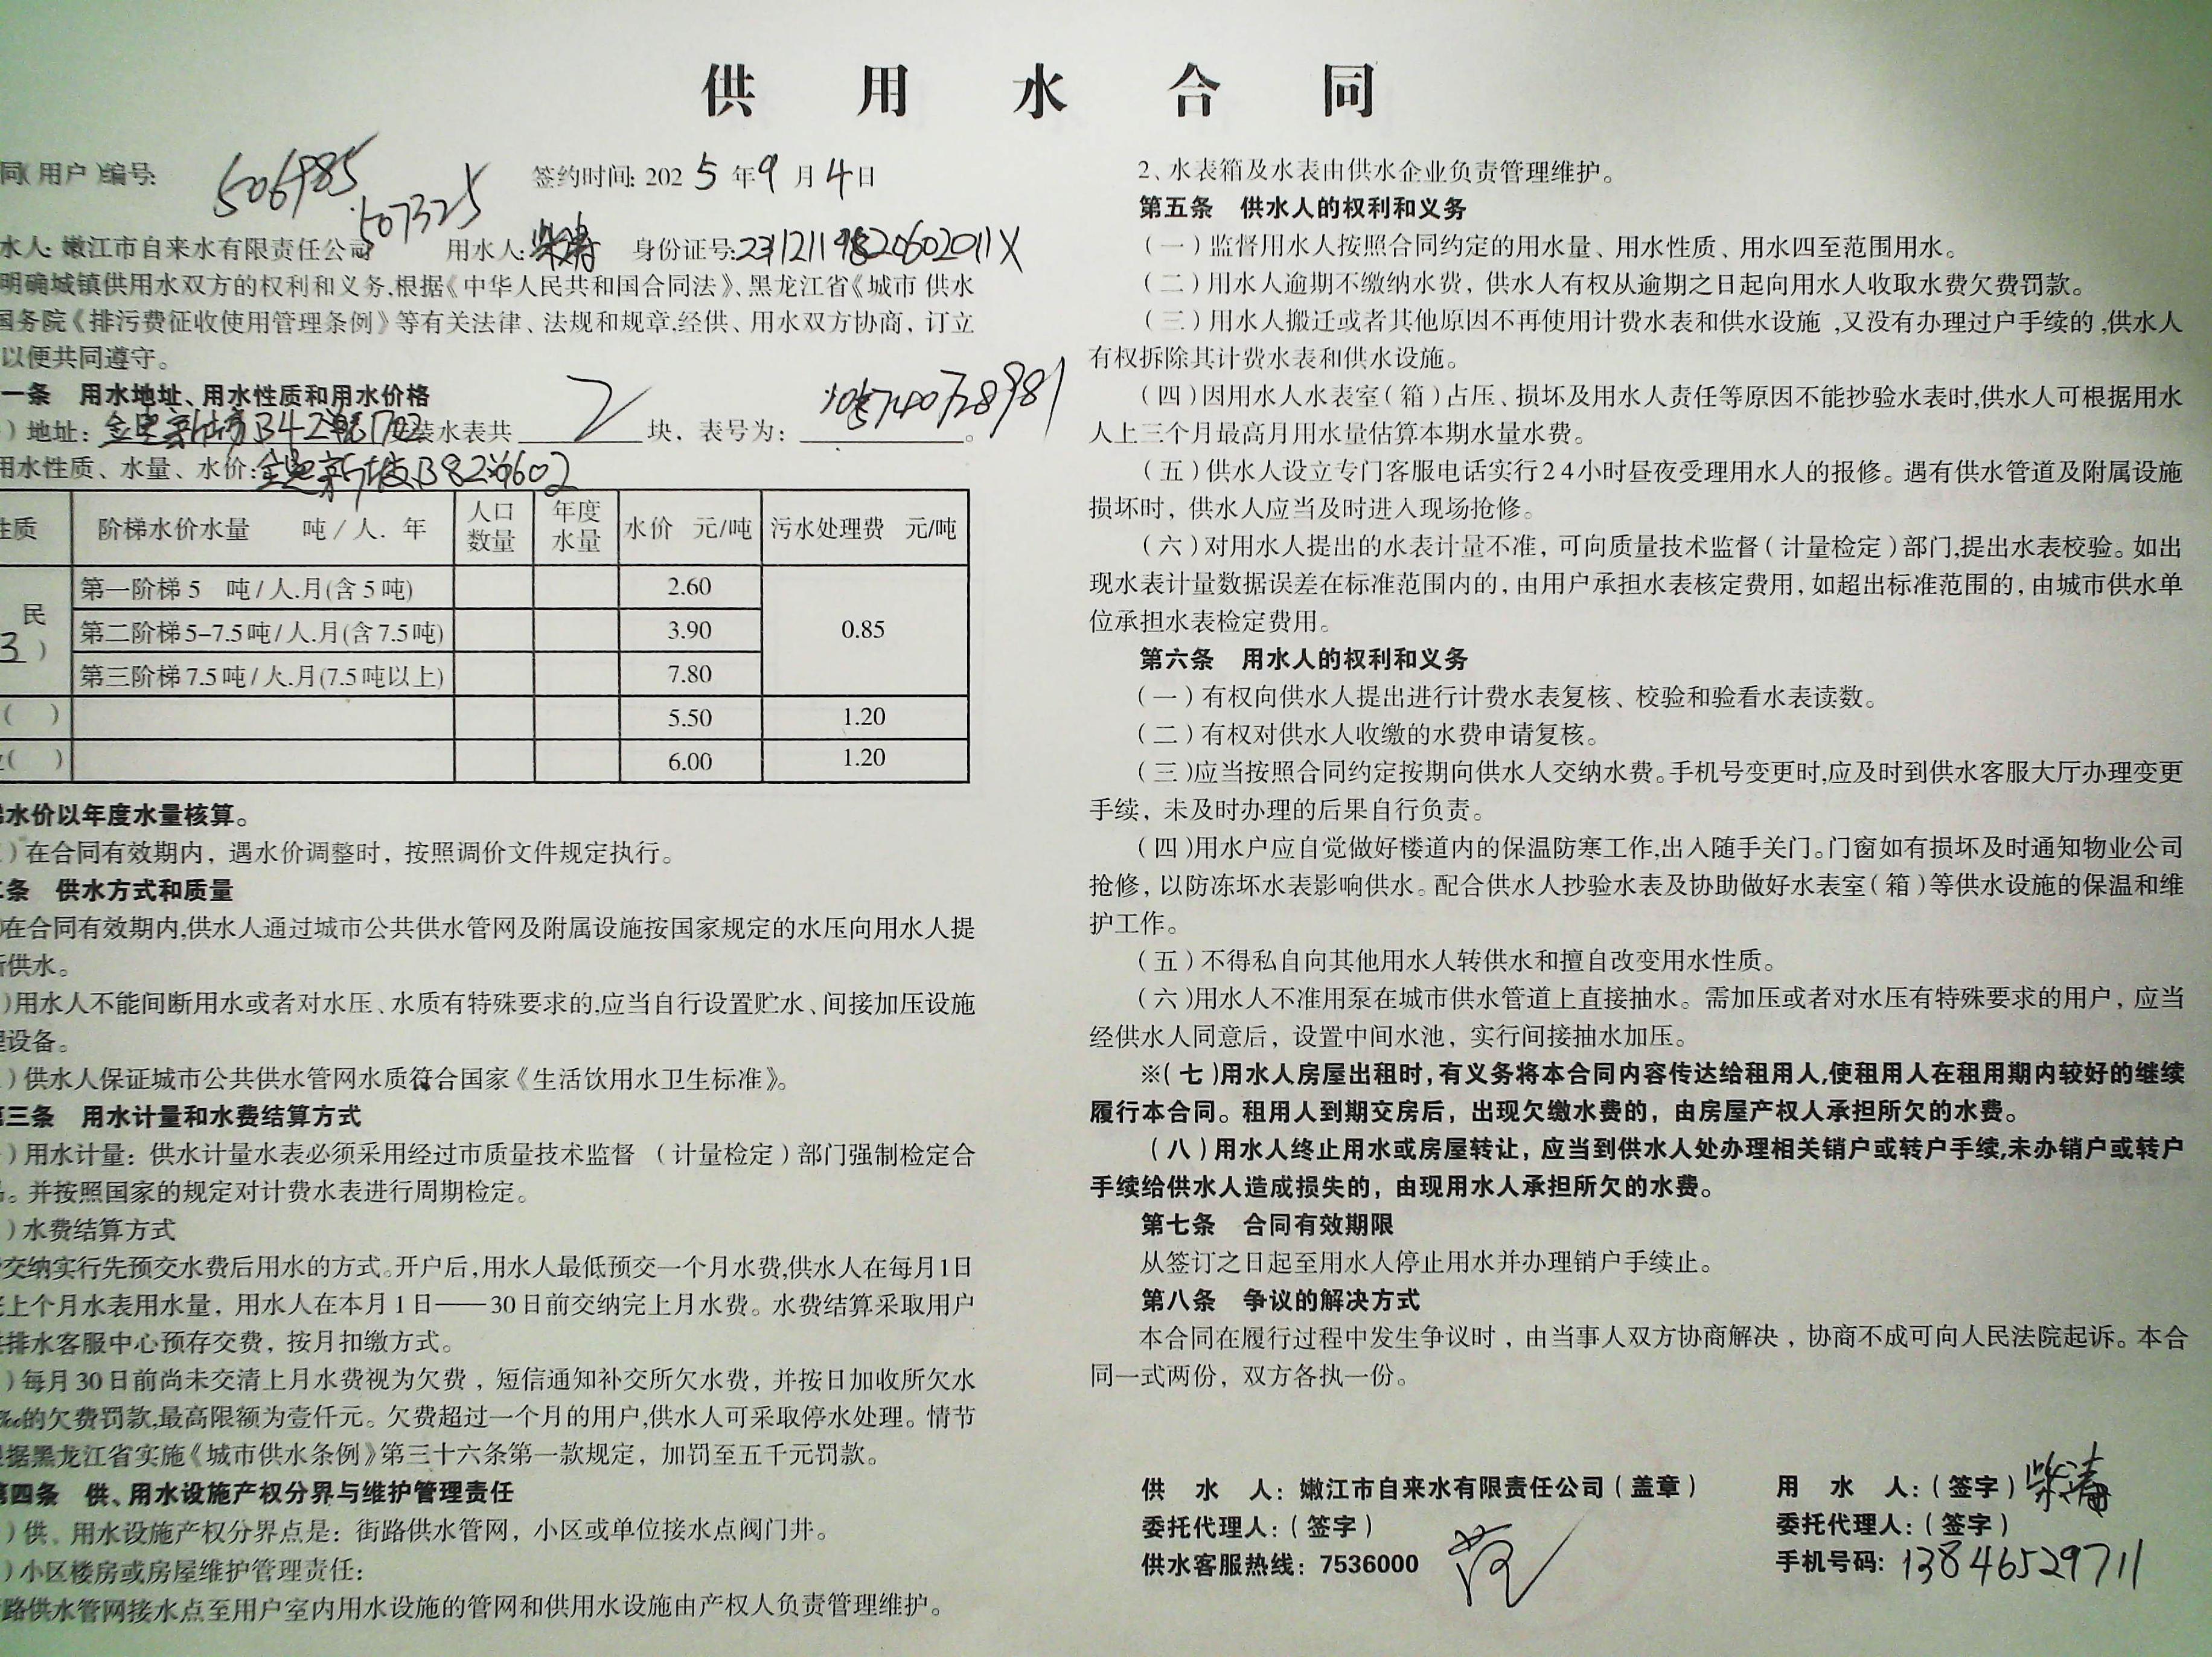 供用水合同
同(用户)编号: 506985 507325 签约时间: 2025年9月4日
水人: 嫩江市自来水有限责任公司 用水人: 柴涛 身份证号:
明确城镇供用水双方的权利和义务,根据《中华人民共和国合同法》、黑龙江省《城市供水
国务院《排污费征收使用管理条例》等有关法律、法规和规章,经供、用水双方协商，订立
以便共同遵守。
一条 用水地址、用水性质和用水价格
)地址: B4 装水表共 2 块，表号为:
用水性质、水量、水价: B82 602
性质 阶梯水价水量 吨/人.年 人口数量 年度水量 水价 元/吨 污水处理费 元/吨
民 3 ) 第一阶梯 5 吨/人.月(含5吨) 2.60 0.85
第二阶梯5-7.5吨/人.月(含7.5吨) 3.90
第三阶梯7.5吨/人.月(7.5吨以上) 7.80
( ) 5.50 1.20
( ) 6.00 1.20
水价以年度水量核算。
)在合同有效期内，遇水价调整时，按照调价文件规定执行。
条 供水方式和质量
)在合同有效期内,供水人通过城市公共供水管网及附属设施按国家规定的水压向用水人提
供水。
)用水人不能间断用水或者对水压、水质有特殊要求的,应当自行设置贮水、间接加压设施
设备。
)供水人保证城市公共供水管网水质符合国家《生活饮用水卫生标准》。
第三条 用水计量和水费结算方式
)用水计量：供水计量水表必须采用经过市质量技术监督（计量检定）部门强制检定合
。并按照国家的规定对计费水表进行周期检定。
)水费结算方式
交纳实行先预交水费后用水的方式。开户后,用水人最低预交一个月水费,供水人在每月1日
上个月水表用水量，用水人在本月1日——30日前交纳完上月水费。水费结算采取用户
排水客服中心预存交费，按月扣缴方式。
)每月30日前尚未交清上月水费视为欠费，短信通知补交所欠水费，并按日加收所欠水
的欠费罚款,最高限额为壹仟元。欠费超过一个月的用户,供水人可采取停水处理。情节
据黑龙江省实施《城市供水条例》第三十六条第一款规定，加罚至五千元罚款。
第四条 供、用水设施产权分界与维护管理责任
)供、用水设施产权分界点是：街路供水管网，小区或单位接水点阀门井。
)小区楼房或房屋维护管理责任：
路供水管网接水点至用户室内用水设施的管网和供用水设施由产权人负责管理维护。
2、水表箱及水表由供水企业负责管理维护。
第五条 供水人的权利和义务
（一）监督用水人按照合同约定的用水量、用水性质、用水四至范围用水。
（二）用水人逾期不缴纳水费，供水人有权从逾期之日起向用水人收取水费欠费罚款。
（三）用水人搬迁或者其他原因不再使用计费水表和供水设施,又没有办理过户手续的,供水人
有权拆除其计费水表和供水设施。
（四）因用水人水表室（箱）占压、损坏及用水人责任等原因不能抄验水表时,供水人可根据用水
人上三个月最高月用水量估算本期水量水费。
（五）供水人设立专门客服电话实行24小时昼夜受理用水人的报修。遇有供水管道及附属设施
损坏时，供水人应当及时进入现场抢修。
（六）对用水人提出的水表计量不准，可向质量技术监督（计量检定）部门,提出水表校验。如出
现水表计量数据误差在标准范围内的，由用户承担水表核定费用，如超出标准范围的，由城市供水单
位承担水表检定费用。
第六条 用水人的权利和义务
（一）有权向供水人提出进行计费水表复核、校验和验看水表读数。
（二）有权对供水人收缴的水费申请复核。
（三）应当按照合同约定按期向供水人交纳水费。手机号变更时,应及时到供水客服大厅办理变更
手续，未及时办理的后果自行负责。
（四）用水户应自觉做好楼道内的保温防寒工作,出入随手关门。门窗如有损坏及时通知物业公司
抢修，以防冻坏水表影响供水。配合供水人抄验水表及协助做好水表室（箱）等供水设施的保温和维
护工作。
（五）不得私自向其他用水人转供水和擅自改变用水性质。
（六）用水人不准用泵在城市供水管道上直接抽水。需加压或者对水压有特殊要求的用户，应当
经供水人同意后，设置中间水池，实行间接抽水加压。
※（七）用水人房屋出租时,有义务将本合同内容传达给租用人,使租用人在租用期内较好的继续
履行本合同。租用人到期交房后，出现欠缴水费的，由房屋产权人承担所欠的水费。
（八）用水人终止用水或房屋转让，应当到供水人处办理相关销户或转户手续,未办销户或转户
手续给供水人造成损失的，由现用水人承担所欠的水费。
第七条 合同有效期限
从签订之日起至用水人停止用水并办理销户手续止。
第八条 争议的解决方式
本合同在履行过程中发生争议时，由当事人双方协商解决，协商不成可向人民法院起诉。本合
同一式两份，双方各执一份。
供水人：嫩江市自来水有限责任公司（盖章） 用水人：（签字）柴涛
委托代理人：（签字） 委托代理人：（签字）
供水客服热线：7536000 手机号码：13846529711